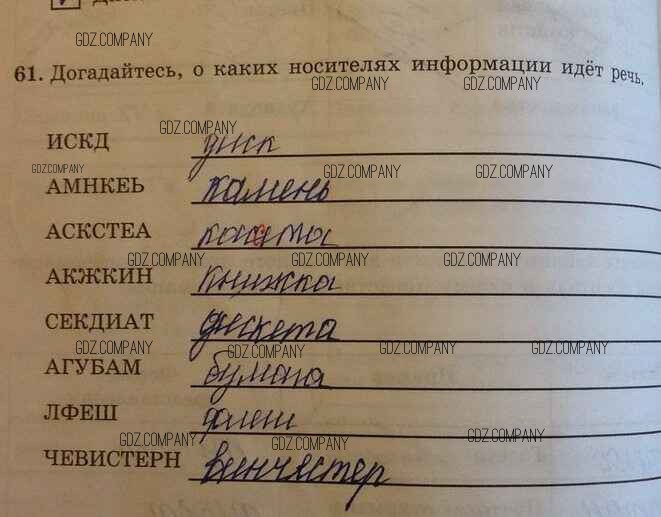 GDZ.COMPANY GDZ.COMPANY
61. Догадайтесь, о каких носителях информации идёт речь.
GDZ.COMPANY GDZ.COMPANY
GDZ.COMPANY
ИСКД диск
GDZ.COMPANY GDZ.COMPANY GDZ.COMPANY
АМНКЕЬ камень
АСКСТЕА
GDZ.COMPANY GDZ.COMPANY GDZ.COMPANY
АКЖКИН книжка
СЕКДИАТ дискета
GDZ.COMPANY GDZ.COMPANY GDZ.COMPANY GDZ.COMPANY
АГУБАМ бумага
ЛФЕШ флеш
GDZ.COMPANY GDZ.COMPANY GDZ.COMPANY
ЧЕВИСТЕРН винчестер